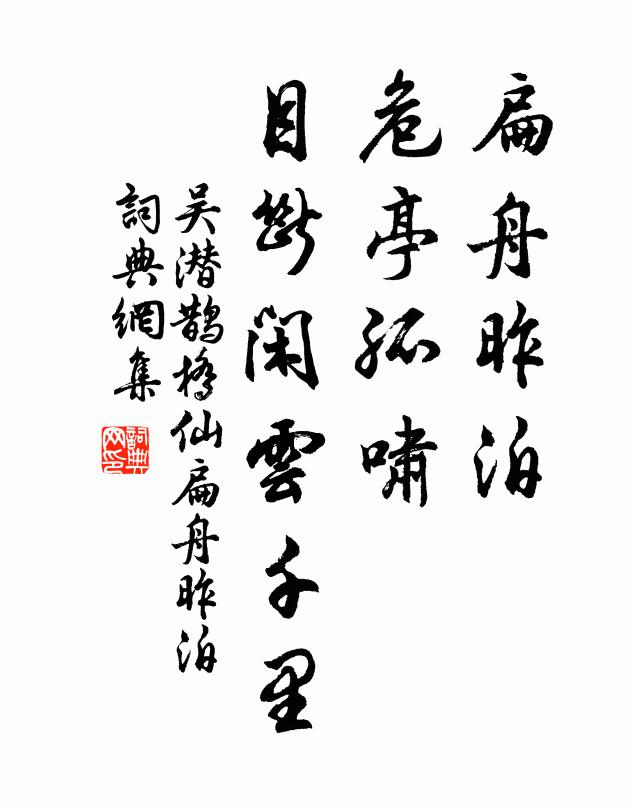 扁舟昨泊
危亭孤嘯
目斷閑雲千里
吴潜鵲橋仙扁舟昨泊
詞典網集
詞典
网印